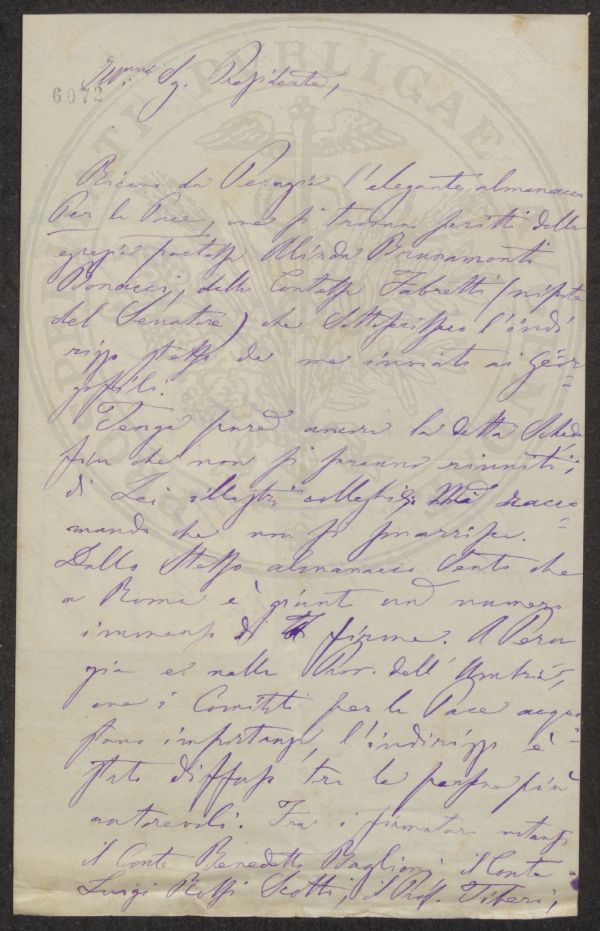 Ill.mo Sg. Presidente,
6072
Ricevo da Perugia l'elegante almanacco
Per la Pace, ove si trovano scritti della
egregia poetessa Alinda Brunamonti
Bonacci, della Contessa Fabretti (nipote
del Senatore) che sottoscrissero l'indi
rizzo stesso da me inviato ai
Tenga pure ancora la detta Scheda
fin che non si saranno riuniti
di Lei illustri colleghi; racco
mando che non si smarrisca.
Dallo stesso almanacco sento che
a Roma è giunto un numero
immenso di firme. A Peru
gia e nella Prov. dell'Umbria,
ove i Comitati per la Pace acqui
stano importanza, l'indirizzo è
stato diffuso tra le persone più
autorevoli. Fra i firmatari notansi
il Conte Benedetto Baglioni, il Conte
Luigi Rossi Scotti, il Prof. Tiberi,